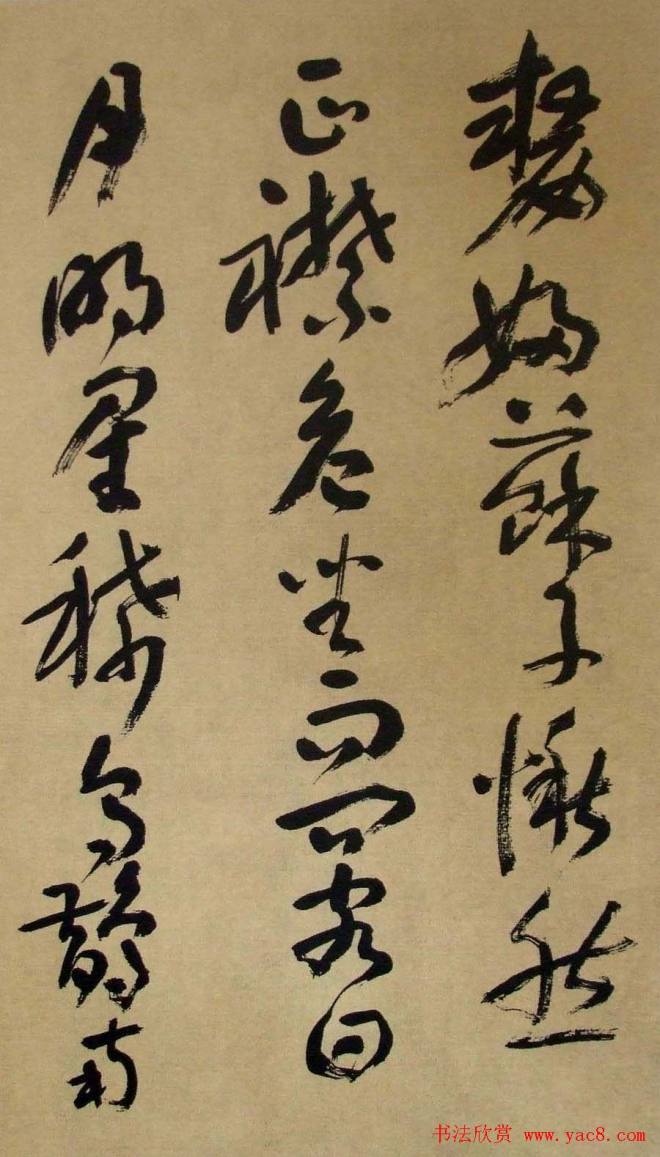 嫠婦蘇子愀然
正襟危坐而問客曰
月明星稀烏鵲南
书法欣赏 www.yac8.com